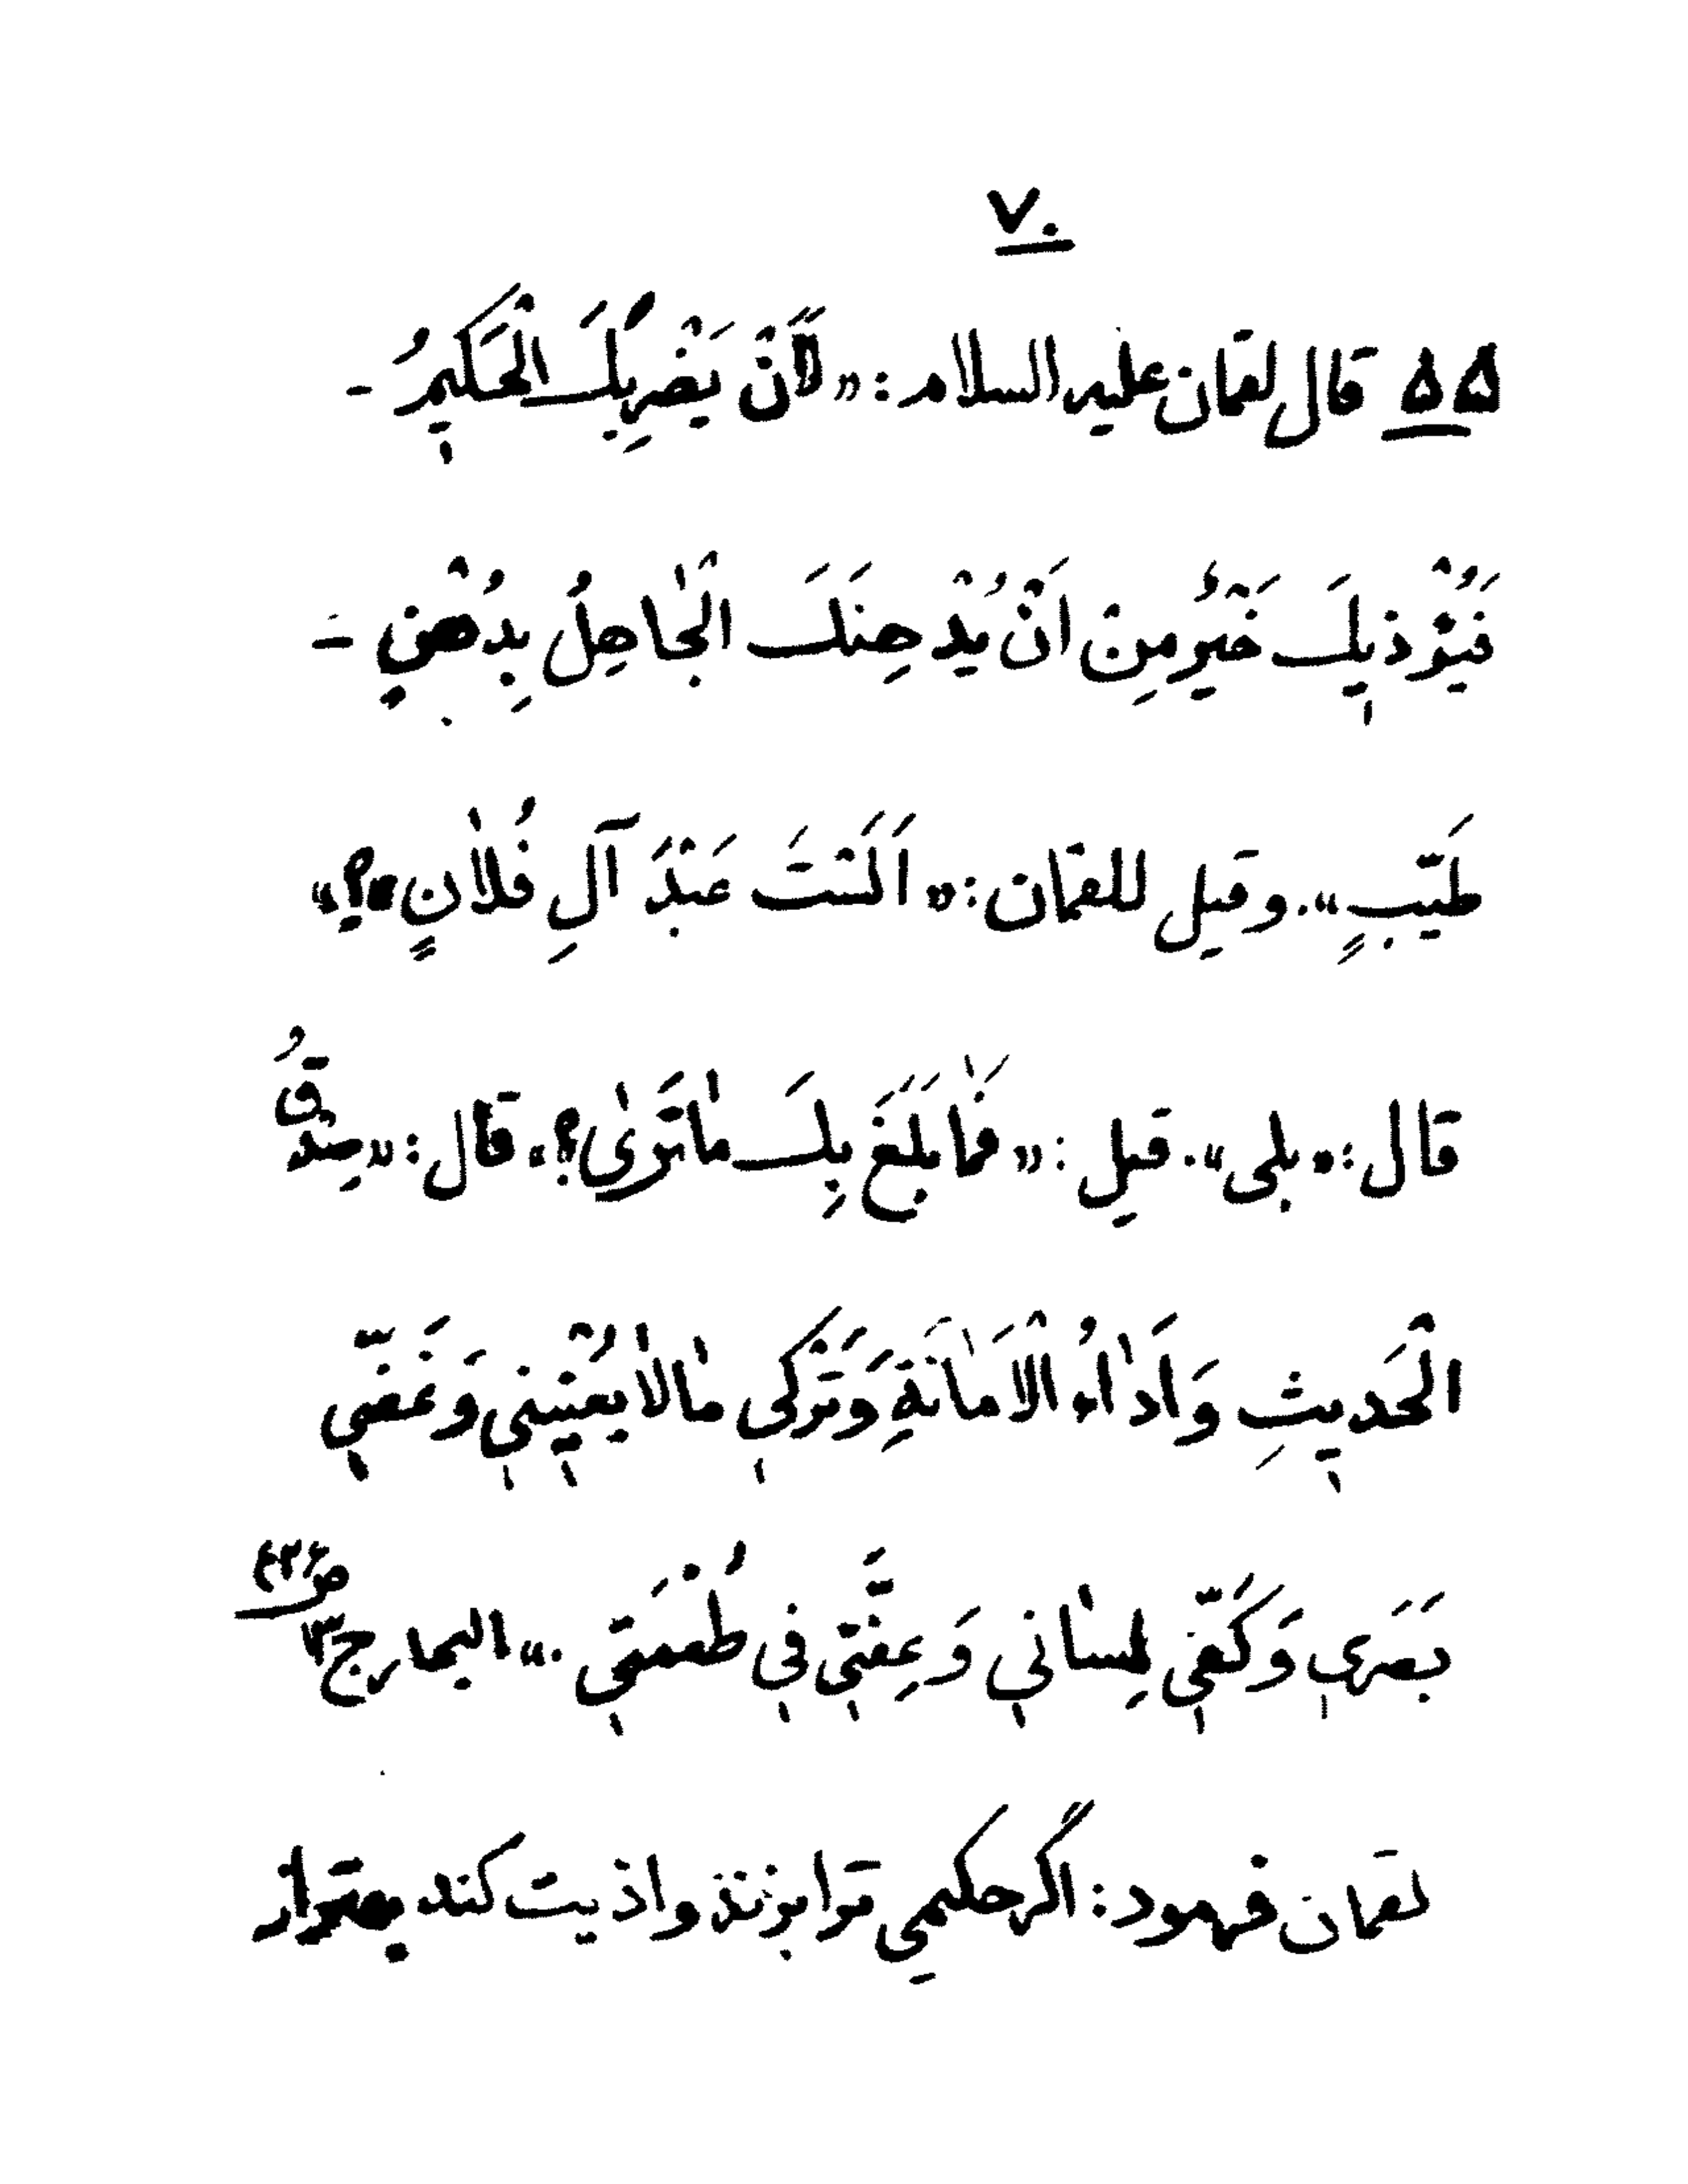 ۷۰
۵۵ قال لقمان علیه السلام: «لَأَنْ یَضْرِبَكَ الْحَكیمُ -
فَیُؤْذیكَ خَیْرٌ مِنْ اَنْ یُدْهِنَكَ الْجاهِلُ بِدُهْنٍ -
طَیِّبٍ». وقیل للقمان: «اَلَسْتَ عَبْدَ آلِ فُلانٍ؟»
قال: «بلی». قیل: «فَمٰا بَلَغَ بِكَ مٰا تَرٰی؟» قال: «صِدْقُ
الْحَدیثِ وَاَدٰاءُ الْاَمٰانَةِ وَتَرْكی مٰالاٰیَعْنینی وَغَضّی
بَصَری وَكَفّی لِسٰانی وَعِفَّتی فی طُعْمَتی.» البحار ج۱۳
لقمان فرمود: اگر حکیمی ترا بزند و اذیت کند بهتر از